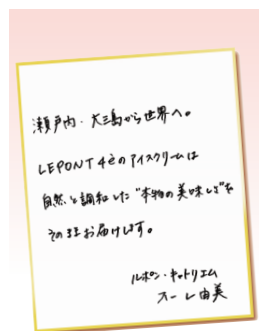 瀬戸内・大三島から世界へ。
LEPONT 4èのアイスクリームは
自然と調和した"本物の美味しさ"を
そのままお届けします。
ルポン・キャトリエム
スーレ由美